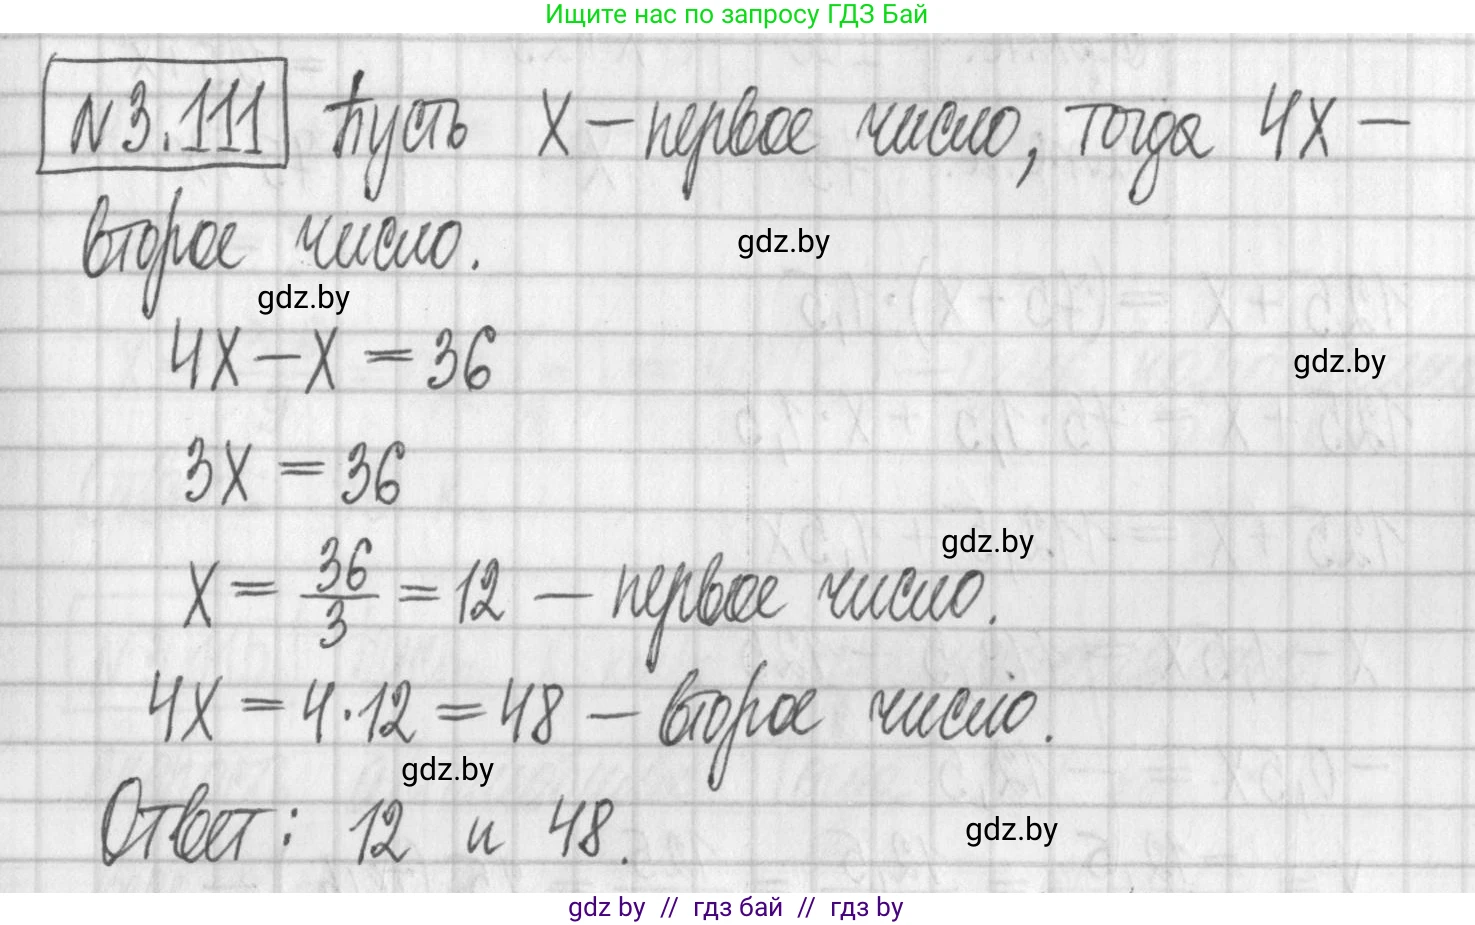 Ищите нас по запросу ГДЗ Бай
№3.111 Пусть x – первое число, тогда 4x –
второе число.
gdz.by
gdz.by
4x – x = 36
gdz.by
3x = 36
gdz.by
x = 36/3 = 12 – первое число.
4x = 4·12 = 48 – второе число.
gdz.by
Ответ: 12 и 48.
gdz.by
gdz by // гдз бай // гдз by